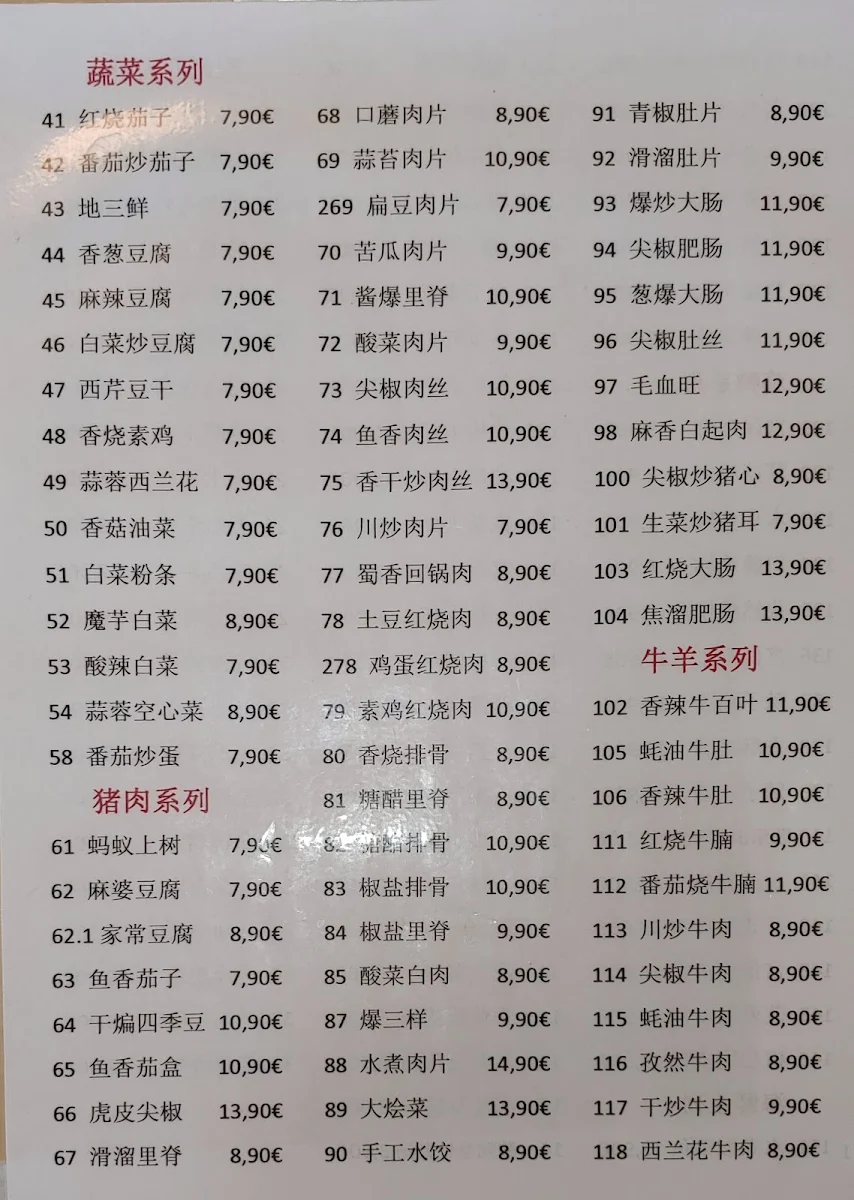 蔬菜系列
41 红烧茄子 7,90€
42 番茄炒茄子 7,90€
43 地三鲜 7,90€
44 香葱豆腐 7,90€
45 麻辣豆腐 7,90€
46 白菜炒豆腐 7,90€
47 西芹豆干 7,90€
48 香烧素鸡 7,90€
49 蒜蓉西兰花 7,90€
50 香菇油菜 7,90€
51 白菜粉条 7,90€
52 魔芋白菜 8,90€
53 酸辣白菜 7,90€
54 蒜蓉空心菜 8,90€
58 番茄炒蛋 7,90€
猪肉系列
61 蚂蚁上树 7,90€
62 麻婆豆腐 7,90€
62.1 家常豆腐 8,90€
63 鱼香茄子 7,90€
64 干煸四季豆 10,90€
65 鱼香茄盒 10,90€
66 虎皮尖椒 13,90€
67 滑溜里脊 8,90€
68 口蘑肉片 8,90€
69 蒜苔肉片 10,90€
269 扁豆肉片 7,90€
70 苦瓜肉片 9,90€
71 酱爆里脊 10,90€
72 酸菜肉片 9,90€
73 尖椒肉丝 10,90€
74 鱼香肉丝 10,90€
75 香干炒肉丝 13,90€
76 川炒肉片 7,90€
77 蜀香回锅肉 8,90€
78 土豆红烧肉 8,90€
278 鸡蛋红烧肉 8,90€
79 素鸡红烧肉 10,90€
80 香烧排骨 8,90€
81 糖醋里脊 8,90€
82 糖醋排骨 10,90€
83 椒盐排骨 10,90€
84 椒盐里脊 9,90€
85 酸菜白肉 8,90€
87 爆三样 9,90€
88 水煮肉片 14,90€
89 大烩菜 13,90€
90 手工水饺 8,90€
91 青椒肚片 8,90€
92 滑溜肚片 9,90€
93 爆炒大肠 11,90€
94 尖椒肥肠 11,90€
95 葱爆大肠 11,90€
96 尖椒肚丝 11,90€
97 毛血旺 12,90€
98 麻香白起肉 12,90€
100 尖椒炒猪心 8,90€
101 生菜炒猪耳 7,90€
103 红烧大肠 13,90€
104 焦溜肥肠 13,90€
牛羊系列
102 香辣牛百叶 11,90€
105 蚝油牛肚 10,90€
106 香辣牛肚 10,90€
111 红烧牛腩 9,90€
112 番茄烧牛腩 11,90€
113 川炒牛肉 8,90€
114 尖椒牛肉 8,90€
115 蚝油牛肉 8,90€
116 孜然牛肉 8,90€
117 干炒牛肉 9,90€
118 西兰花牛肉 8,90€